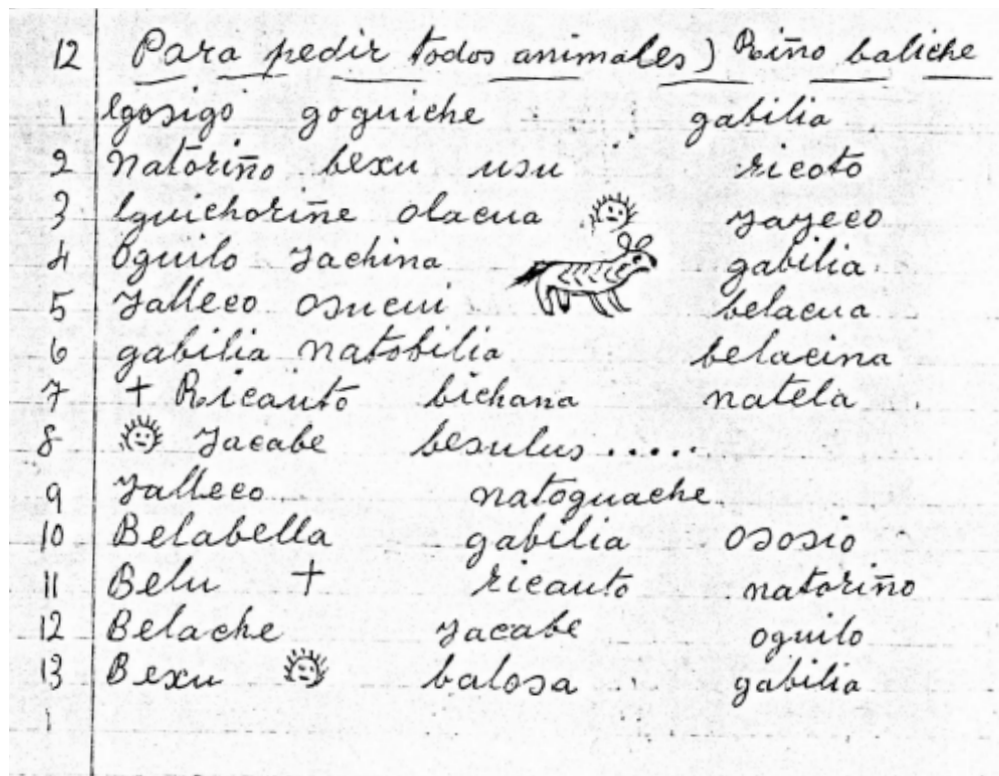 12 Para pedir todos animales) Riño baliche
1 Egosigo goguiche gabilia
2 Natoriño bexu usu ricoto
3 Eguichoriñe olacua yayeco
4 Oguilo yachina gabilia
5 Yalleco osucui belacua
6 gabilia natobilia belacina
7 + Ricauto bichana natela
8 Yacabe besulus .....
9 Yalleco natoguache
10 Belabella gabilia ososio
11 Belu + ricauto natoriño
12 Belache yacabe oguilo
13 Bexu balosa gabilia
1